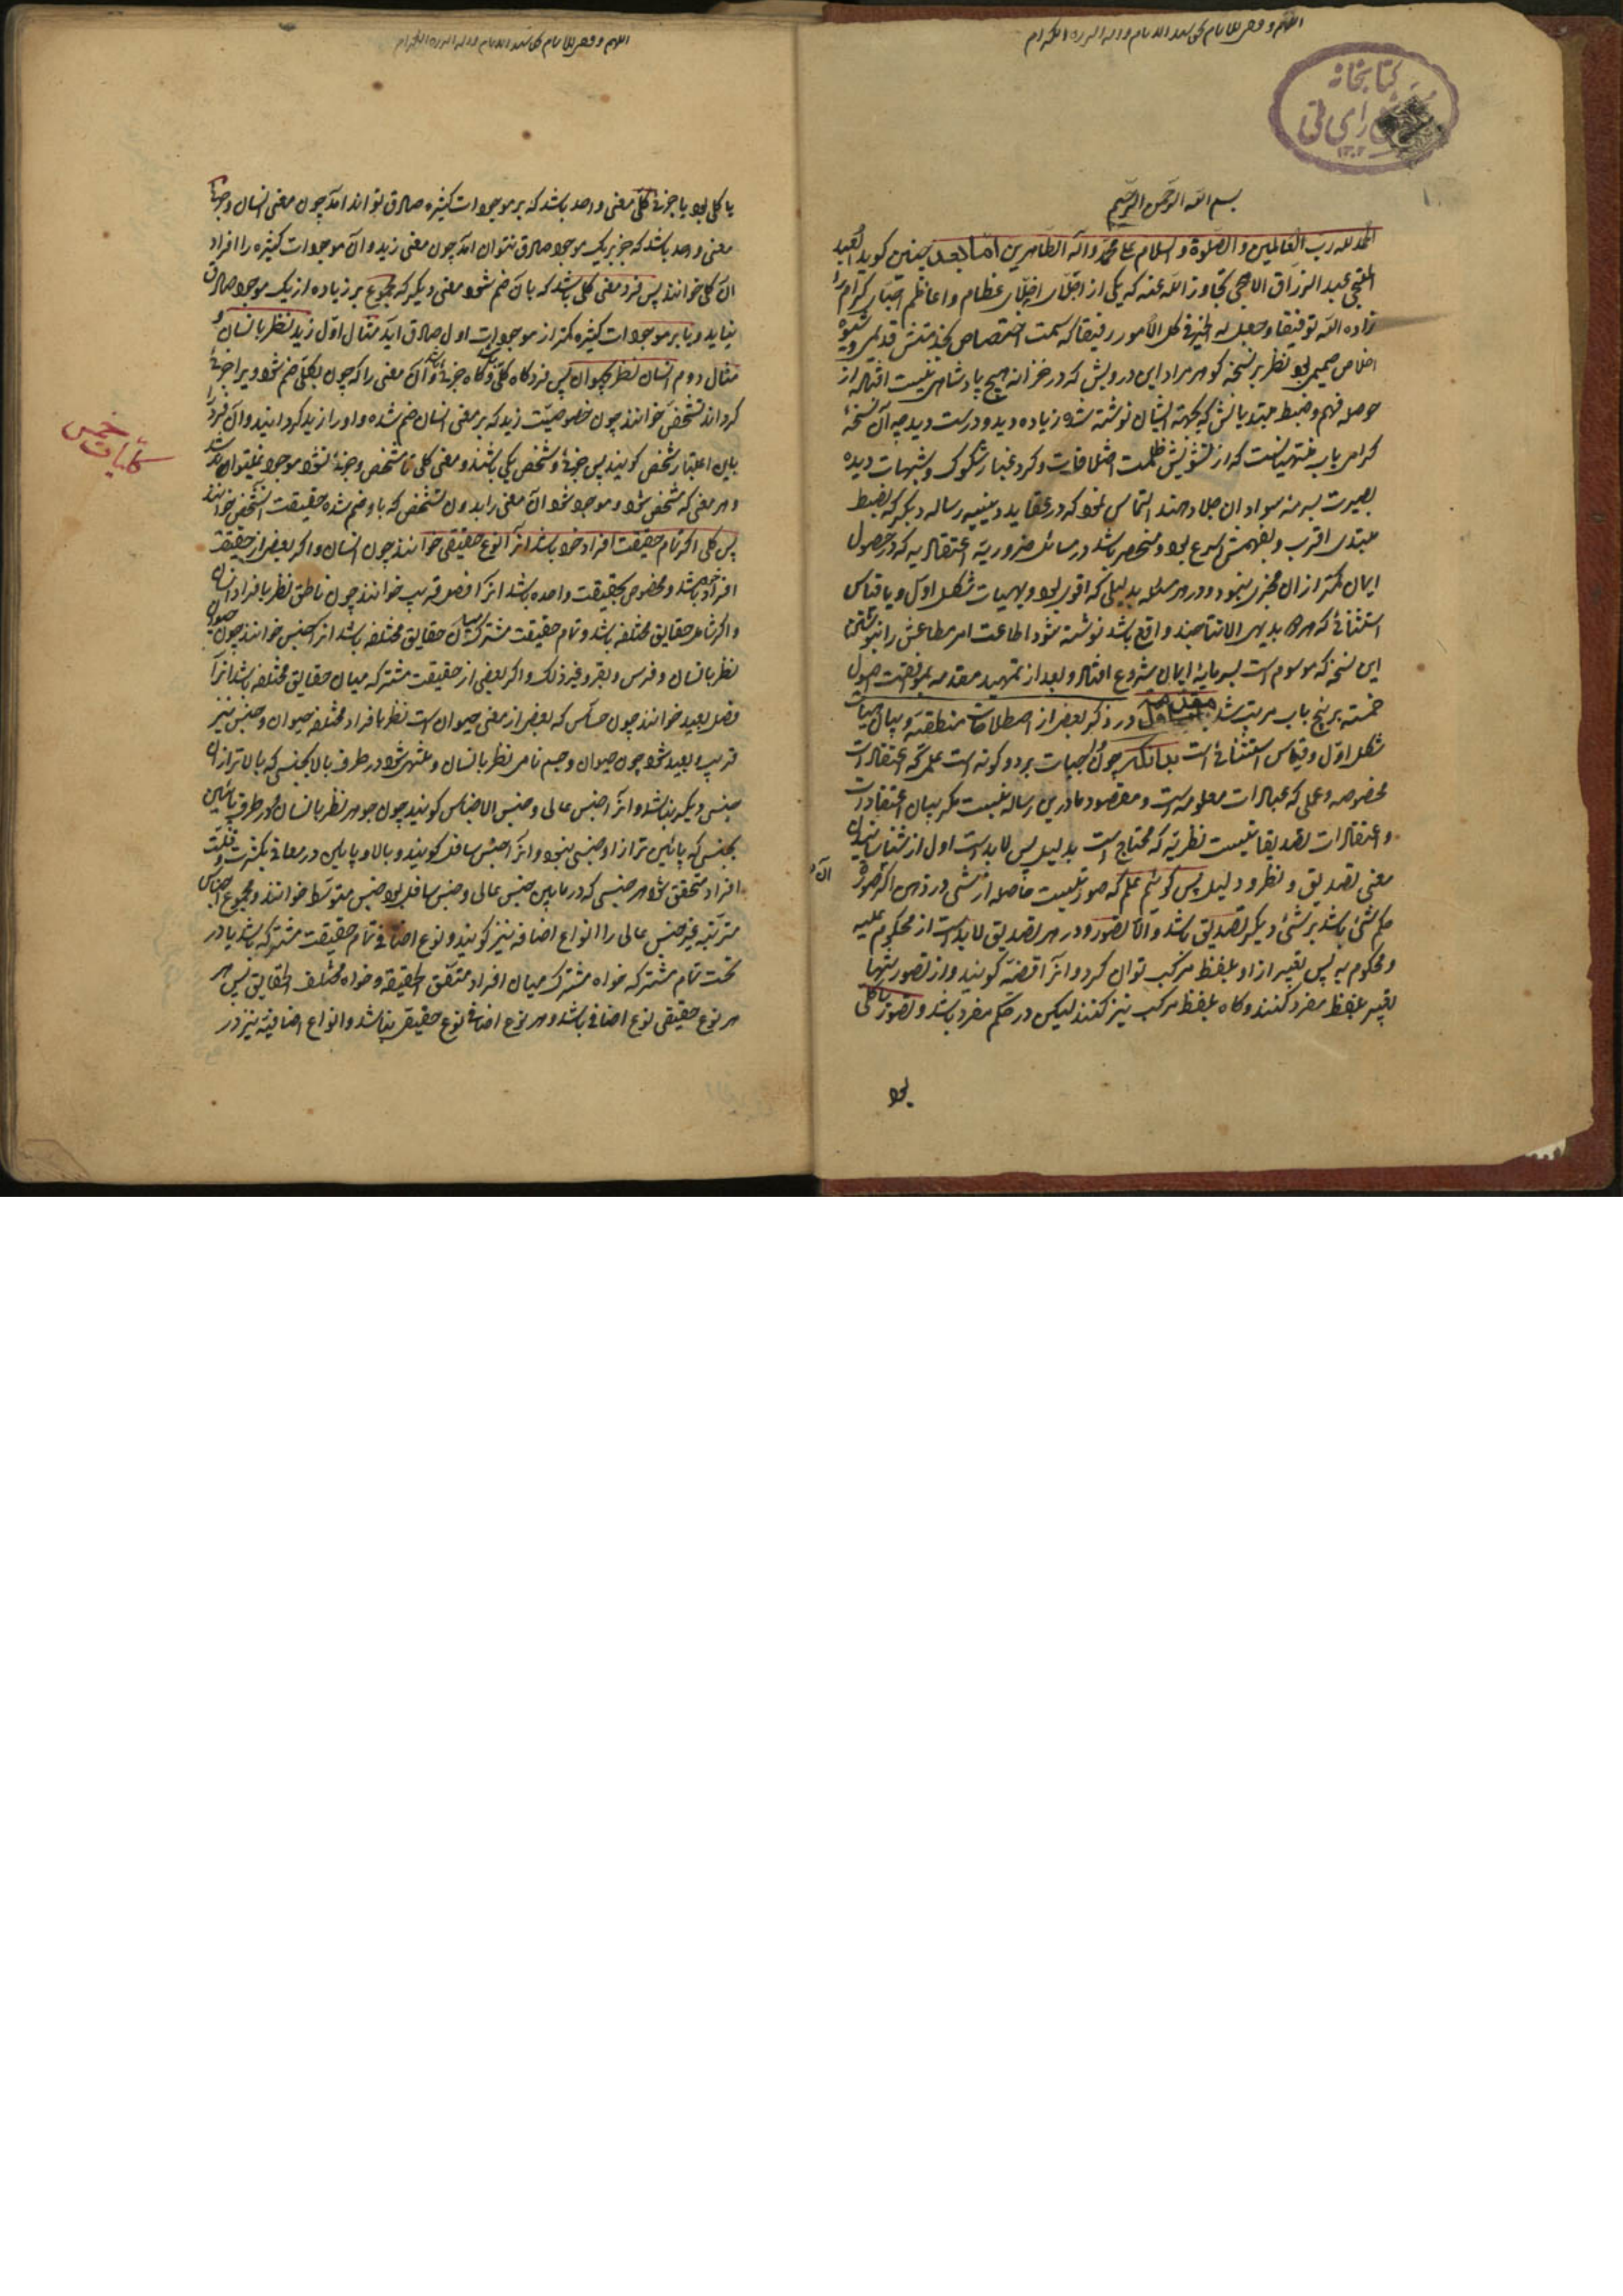 کتابخانه
بسم الله الرحمن الرحیم
الحمد لله رب العالمین و الصلوة و السلام علی محمد و آله الطاهرین اما بعد چنین کوید العبد
الملتجی عبد الرزاق اللاهجی تجاوز الله عنه که یکی از اجلاء اخلای عظام و اعاظم احبای کرام را
زاده الله توفیقا و جعل له الخیر فی کل الامور رفیقا که سمت اختصاص بخدمتش قدیمی و شیوه
اخلاص صمیمی بود نظر بر نسخه کوهر مراد این درویش که در خزانه هیچ پادشاهی نیست افتاد از
حوصله فهم و ضبط مبتدیانش که بجهة ایشان نوشته شده زیاده دید و درست دید چه آن نسخهٔ
کرامی باب منتهیانست که از تشویش ظلمت اختلافات و کرد غبار شکوک و شبهات دیده
بصیرت بسرمه سواد آن جلا دهند التماس نمود که در عقاید دینیه رساله دیکر که بضبط
مبتدی اقرب و بفهمش اسرع بود و منحصر باشد در مسائل ضروریه اعتقادیه که در حصول
ایمان کمتر از آن مجزی نبود و در هر مسئله بدلیلی که اقوی بود و بهیات شکل اول و یا قیاس
استثنائی که هر دو بدیهی الانتاجند واقع باشد نوشته شود اطاعت امر مطاعش را بنوشتن
این نسخه که موسوم است بسرمایهٔ ایمان شروع افتاد و بعد از تمهید مقدمه بموافقت اصول
خمسه بر پنج باب مرتب شد مقدمه در ذکر بعضی از اصطلاحات منطقیه و بیان هیات
شکل اول و قیاس استثنائی است بدانکه چون واجبات بر دو کونه است علمی که اعتقادات
مخصوصه و عملی که عبادات معلومه است و مقصود ما درین رساله نیست مکر بیان اعتقادات
و اعتقادات تصدیقاتیست نظریه که محتاج است بدلیل پس لابد است اول از شناسانیدن
معنی تصدیق و نظر و دلیل پس کوئیم علم که صورتیست حاصله از شئ در ذهن اکر صورة
آن
حکم شئ باشد بر شئ دیکر تصدیق باشد و الا تصور و در هر تصدیق لابد است از محکوم علیه
و محکوم به پس تعبیر از او بلفظ مرکب توان کرد و آنرا قضیه کویند و از تصور تنها
تعبیر بلفظ مفرد کنند و کاه بلفظ مرکب نیز کنند لیکن در حکم مفرد باشد و تصور یا کلی
بود
یا کلی بود یا جزئی کلی معنی واحد باشد که بر موجودات کثیره صادق تواند آمد چون معنی انسان و جزئی
معنی واحد باشد که جز بر یک موجود صادق نتوان آمد چون معنی زید و آن موجودات کثیره را افراد
آن کلی خوانند پس فرد معنی کلی باشد که با آن ضم شود معنی دیکر که مجموع بر زیاده از یک موجود صادق
نیاید و یا بر موجودات کثیره کمتر از موجودات اول صادق آید مثال اول زید نظر بانسان و
مثال دوم انسان نظر بحیوان پس فرد کاه کلی و کاه جزئی و آن معنی را که چون بکلی ضم شود ویرا جزئی
کرداند تشخص خوانند چون خصوصیت زید که بر معنی انسان ضم شده و او را زید کردانید و آن فرد را
باین اعتبار شخص کویند پس جزئی و شخص یکی باشند و معنی کلی تا متشخص و جزئی نشود موجود نمیتواند شد
و هر معنی که متشخص شود و موجود شود آن معنی را بدون تشخص که باو ضم شده حقیقت آن شخص خوانند
پس کلی اکر تمام حقیقت افراد خود باشد آنرا نوع حقیقی خوانند چون انسان و اکر بعضی از حقیقت
افراد باشد و مخصوص بحقیقت واحده باشد آنرا فصل قریب خوانند چون ناطق نظر بافراد انسان
و اکر شامل حقایق مختلفه باشد و تمام حقیقت مشترک میان حقایق مختلفه باشد آنرا جنس خوانند چون حیوان
نظر بانسان و فرس و بقر و غیر ذلک و اکر بعضی از حقیقت مشترکه میان حقایق مختلفه باشد آنرا
فصل بعید خوانند چون حساس که بعضی از معنی حیوان است نظر بافراد مختلفه حیوان و جنس نیز
قریب و بعید شود چون حیوان و جسم نامی نظر بانسان و منتهی شود در طرف بالا بجنسی که بالاتر از او
جنس دیکر نباشد و آنرا جنس عالی و جنس الاجناس کویند چون جوهر نظر بانسان و در طرف پائین
بجنسی که پائین تر از او جنسی نبود و آنرا جنس سافل کویند و بالا و پایین در معانی بکثرت و قلت
افراد متحقق شود هر جنسی که در مابین جنس عالی و جنس سافل بود جنس متوسط خوانند و مجموع اجناس
مترتبه غیر جنس عالی را انواع اضافه نیز کویند و نوع اضافی تمام حقیقت مشترکه باشد یا در
تحت تمام مشترکه خواه مشترک میان افراد متفق الحقیقة و خواه مختلف الحقایق پس هر
هر نوع حقیقی نوع اضافی باشد و هر نوع اضافی نوع حقیقی نباشد و انواع اضافیه نیز در
کلیات خمس